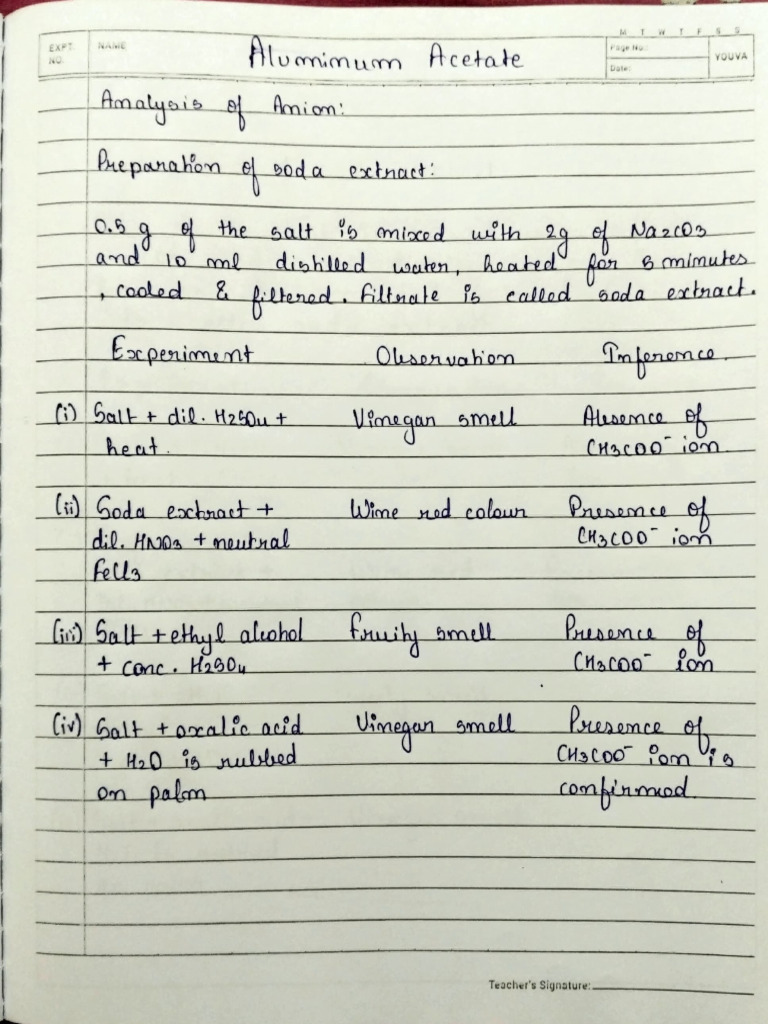 M T W T F S S
EXPT. NO. NAME Aluminum Acetate Page No.: Date: YOUVA
Analysis of Anion:
Preparation of soda extract:
0.5 g of the salt is mixed with 2g of Na2CO3
and 10 ml distilled water, heated for 5 minutes
, cooled & filtered. Filtrate is called soda extract.
Experiment Observation Inference
(i) Salt + dil. H2SO4 + Vinegar smell Absence of
heat. CH3COO⁻ ion
(ii) Soda exctract + Wine red colour Presence of
dil. HNO3 + neutral CH3COO⁻ ion
FeCl3
(iii) Salt + ethyl alcohol Fruity smell Presence of
+ conc. H2SO4 CH3COO⁻ ion
(iv) Salt + oxalic acid Vinegar smell Presence of
+ H2O is rubbed CH3COO⁻ ion is
on palm confirmed
Teacher's Signature: